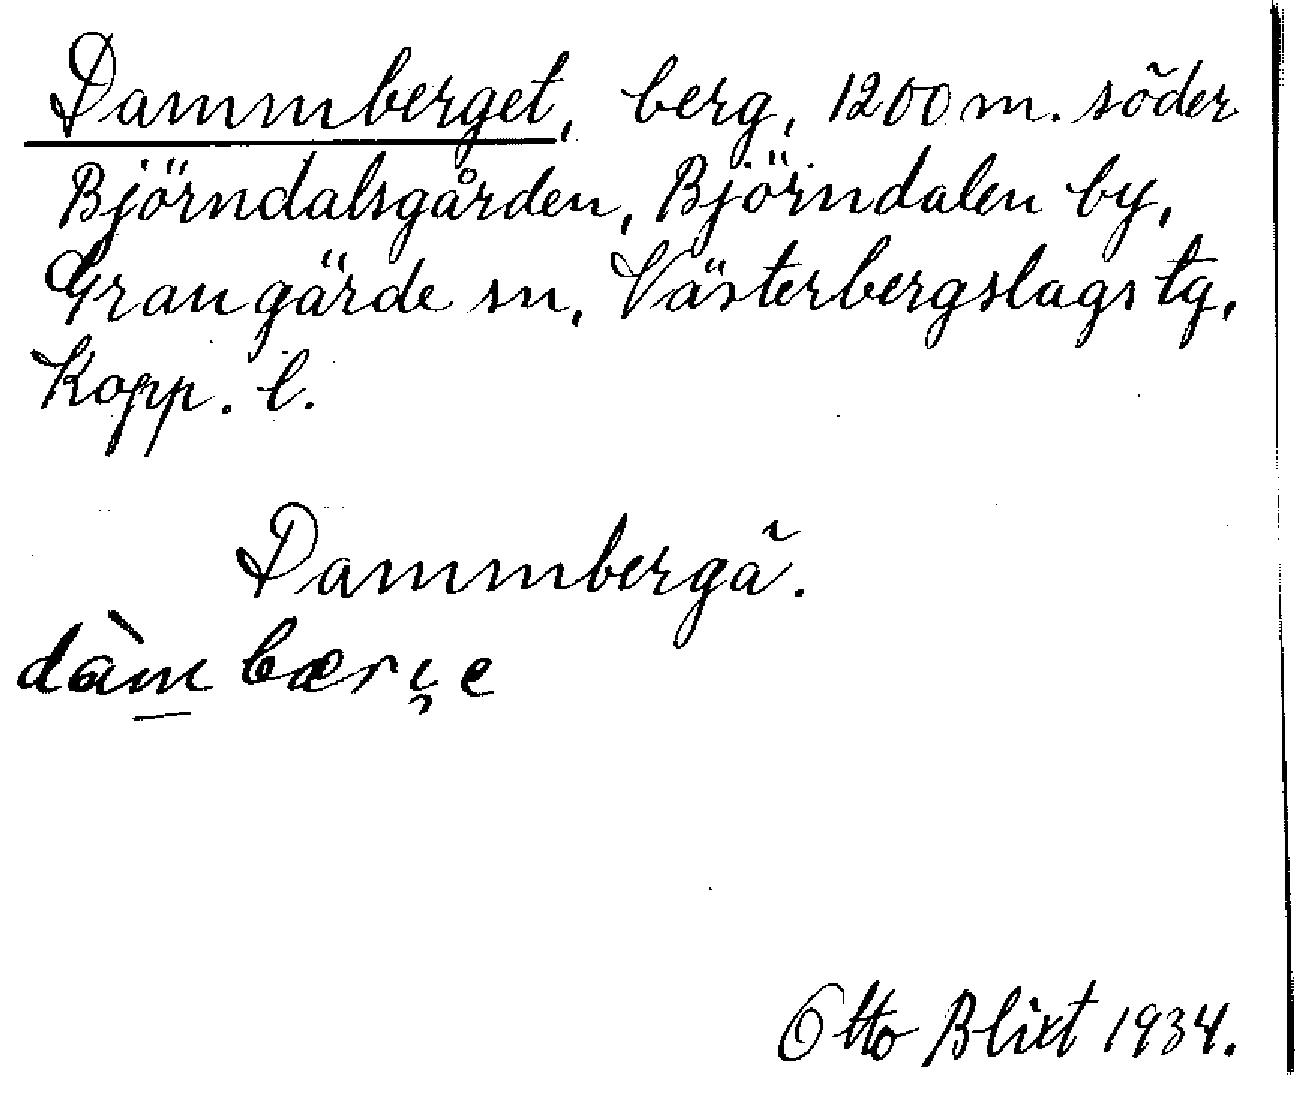 Dammberget, berg, 1200 m. söder
Björndalsgården, Björndalen by,
Grangärde sn, Västerbergslags tg,
Kopp. l.
Dammbergä.
dàm bærįe
Otto Blixt 1934.